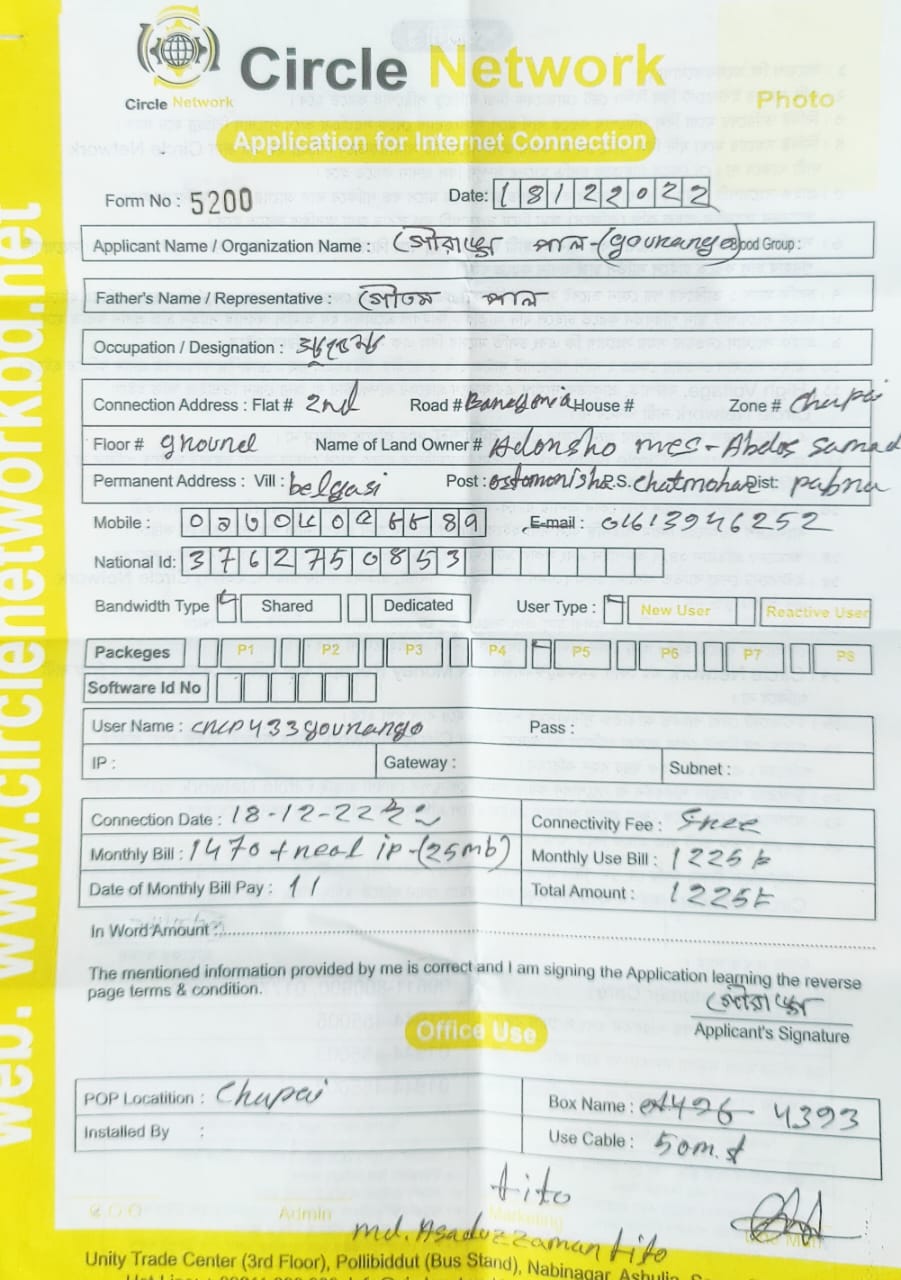 Circle Network
Circle Network
Photo
Application for Internet Connection
Form No : 5200
Date: 18122022
Applicant Name / Organization Name : গৌরাঙ্গ পাল-(gourango) Blood Group :
Father's Name / Representative : গৌতম পাল
Occupation / Designation :
Connection Address : Flat # 2nd Road # House # Zone # Chupai
Floor # ground Name of Land Owner # Adonsho mes - Abdos Samad
Permanent Address : Vill : belgasi Post : P.S. Chatmohar Dist: pabna
Mobile : E-mail : 01613946252
National Id: 3762750853
Bandwidth Type Shared Dedicated User Type : New User Reactive User
Packeges P1 P2 P3 P4 P5 P6 P7 P8
Software Id No
User Name : cncp433gourango Pass :
IP : Gateway : Subnet :
Connection Date : 18-12-22 Connectivity Fee : Free
Monthly Bill : 1470 + real ip -(25mb) Monthly Use Bill : 1225৳
Date of Monthly Bill Pay : 1/ Total Amount : 1225৳
In Word Amount :
The mentioned information provided by me is correct and I am signing the Application learning the reverse
page terms & condition.
গৌরাঙ্গ
Applicant's Signature
Office Use
POP Locatition : Chupai Box Name : 4393
Installed By : Use Cable : 50m.
tito
Admin Marketing
md. Asaduzzaman tito
Unity Trade Center (3rd Floor), Pollibiddut (Bus Stand), Nabinagar, Ashulia,
web. www.circlenetworkbd.net